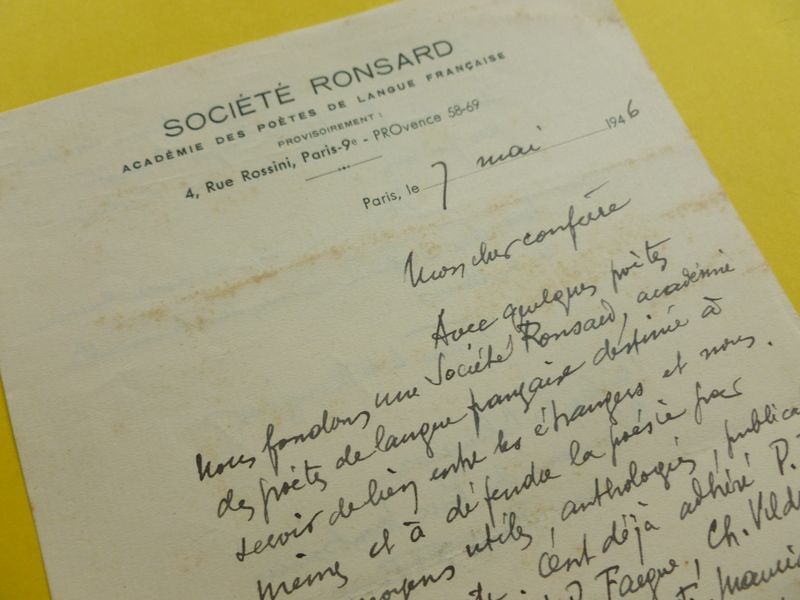 SOCIÉTÉ RONSARD
ACADÉMIE DES POÈTES DE LANGUE FRANÇAISE
PROVISOIREMENT :
4, Rue Rossini, Paris-9e - PROvence 58-69
Paris, le 7 mai 1946
Mon cher confrère
Avec quelques poètes
nous fondons une Société Ronsard, académie
des poètes de langue française destinée à
servir de lien entre les étrangers et nous.
même et à défendre la poésie par
moyens utiles, anthologies, publica
Ont déjà adhéré P.
Fargue, Ch. Vild